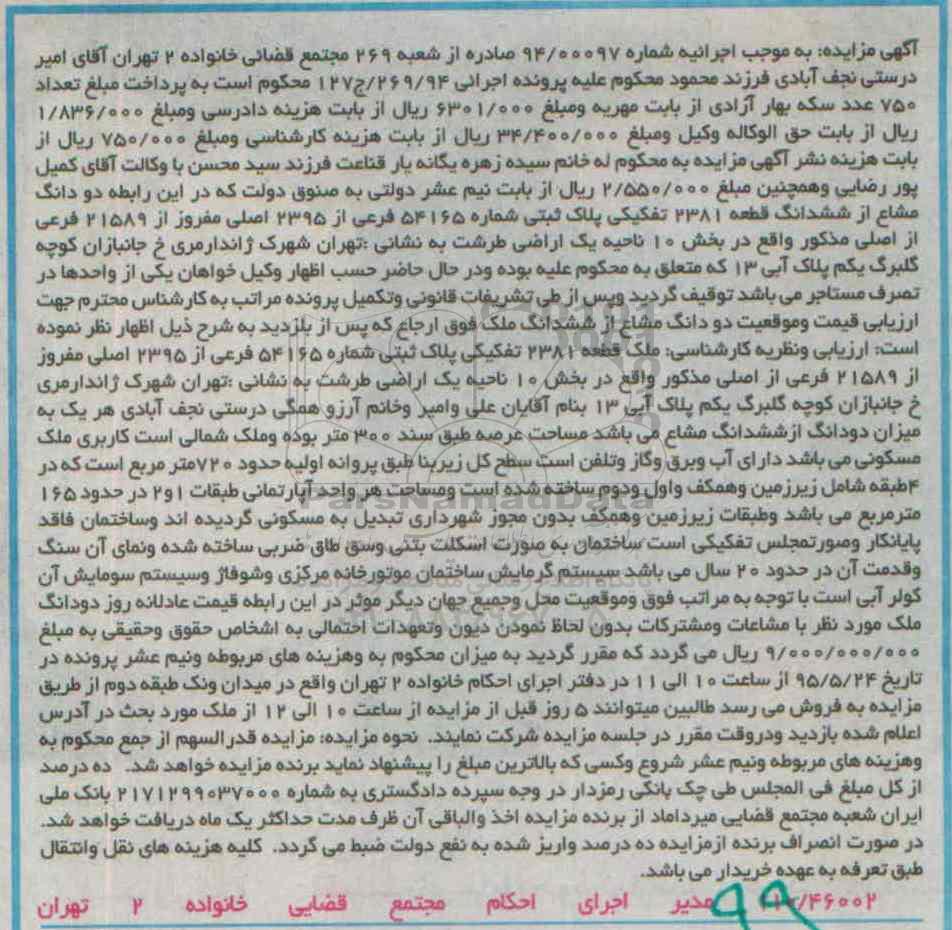 آگهی مزایده: به موجب اجرائیه شماره ۹۴/۰۰۰۹۷ صادره از شعبه ۲۶۹ مجتمع قضائی خانواده ۲ تهران آقای امیر
درستی نجف آبادی فرزند محمود محکوم علیه پرونده اجرائی ۲۶۹/۹۴/ج۱۲۷ محکوم است به پرداخت مبلغ تعداد
۷۵۰ عدد سکه بهار آزادی از بابت مهریه ومبلغ ۶۳۰۱/۰۰۰ ریال از بابت هزینه دادرسی ومبلغ ۱/۸۳۶/۰۰۰
ریال از بابت حق الوکاله وکیل ومبلغ ۳۴/۴۰۰/۰۰۰ ریال از بابت هزینه کارشناسی ومبلغ ۷۵۰/۰۰۰ ریال از
بابت هزینه نشر آگهی مزایده به محکوم له خانم سیده زهره یگانه یار قناعت فرزند سید محسن با وکالت آقای کمیل
پور رضایی وهمچنین مبلغ ۲/۵۵۰/۰۰۰ ریال از بابت نیم عشر دولتی به صنوق دولت که در این رابطه دو دانگ
مشاع از ششدانگ قطعه ۲۳۸۱ تفکیکی پلاک ثبتی شماره ۵۴۱۶۵ فرعی از ۲۳۹۵ اصلی مفروز از ۲۱۵۸۹ فرعی
از اصلی مذکور واقع در بخش ۱۰ ناحیه یک اراضی طرشت به نشانی :تهران شهرک ژاندارمری خ جانبازان کوچه
گلبرگ یکم پلاک آبی ۱۳ که متعلق به محکوم علیه بوده ودر حال حاضر حسب اظهار وکیل خواهان یکی از واحدها در
تصرف مستاجر می باشد توقیف گردید وپس از طی تشریفات قانونی وتکمیل پرونده مراتب به کارشناس محترم جهت
ارزیابی قیمت وموقعیت دو دانگ مشاع از ششدانگ ملک فوق ارجاع که پس از بلزدید به شرح ذیل اظهار نظر نموده
است: ارزیابی ونظریه کارشناسی: ملک قطعه ۲۳۸۱ تفکیکی پلاک ثبتی شماره ۵۴۱۶۵ فرعی از ۲۳۹۵ اصلی مفروز
از ۲۱۵۸۹ فرعی از اصلی مذکور واقع در بخش ۱۰ ناحیه یک اراضی طرشت به نشانی :تهران شهرک ژاندارمری
خ جانبازان کوچه گلبرگ یکم پلاک آبی ۱۳ بنام آقایان علی وامیر وخانم آرزو همگی درستی نجف آبادی هر یک به
میزان دودانگ ازششدانگ مشاع می باشد مساحت عرصه طبق سند ۳۰۰ متر بوده وملک شمالی است کاربری ملک
مسکونی می باشد دارای آب وبرق وگاز وتلفن است سطح کل زیربنا طبق پروانه اولیه حدود ۷۲۰متر مربع است که در
۴طبقه شامل زیرزمین وهمکف واول ودوم ساخته شده است ومساحت هر واحد آپارتمانی طبقات ۱و۲ در حدود ۱۶۵
مترمربع می باشد وطبقات زیرزمین وهمکف بدون مجوز شهرداری تبدیل به مسکونی گردیده اند وساختمان فاقد
پایانکار وصورتمجلس تفکیکی است ساختمان به صورت اسکلت بتنی وسق طاق ضربی ساخته شده ونمای آن سنگ
وقدمت آن در حدود ۲۰ سال می باشد سیستم گرمایش ساختمان موتورخانه مرکزی وشوفاژ وسیستم سومایش آن
کولر آبی است با توجه به مراتب فوق وموقعیت محل وجمیع جهان دیگر موثر در این رابطه قیمت عادلانه روز دودانگ
ملک مورد نظر با مشاعات ومشترکات بدون لحاظ نمودن دیون وتعهدات احتمالی به اشخاص حقوق وحقیقی به مبلغ
۹/۰۰۰/۰۰۰/۰۰۰ ریال می گردد که مقرر گردید به میزان محکوم به وهزینه های مربوطه ونیم عشر پرونده در
تاریخ ۹۵/۵/۲۴ از ساعت ۱۰ الی ۱۱ در دفتر اجرای احکام خانواده ۲ تهران واقع در میدان ونک طبقه دوم از طریق
مزایده به فروش می رسد طالبین میتوانند ۵ روز قبل از مزایده از ساعت ۱۰ الی ۱۲ از ملک مورد بحث در آدرس
اعلام شده بازدید ودروقت مقرر در جلسه مزایده شرکت نمایند. نحوه مزایده: مزایده قدرالسهم از جمع محکوم به
وهزینه های مربوطه ونیم عشر شروع وکسی که بالاترین مبلغ را پیشنهاد نماید برنده مزایده خواهد شد. ده درصد
از کل مبلغ فی المجلس طی چک بانکی رمزدار در وجه سپرده دادگستری به شماره ۲۱۷۱۲۹۹۰۳۷۰۰۰ بانک ملی
ایران شعبه مجتمع قضایی میرداماد از برنده مزایده اخذ والباقی آن ظرف مدت حداکثر یک ماه دریافت خواهد شد.
در صورت انصراف برنده ازمزایده ده درصد واریز شده به نفع دولت ضبط می گردد. کلیه هزینه های نقل وانتقال
طبق تعرفه به عهده خریدار می باشد.
/۴۶۰۰۲ مدیر اجرای احکام مجتمع قضایی خانواده ۲ تهران
۹۹
ParsNamadData